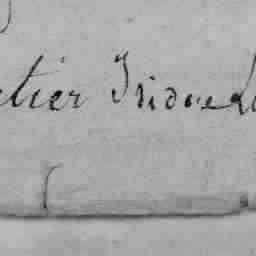 etier Isidore Le